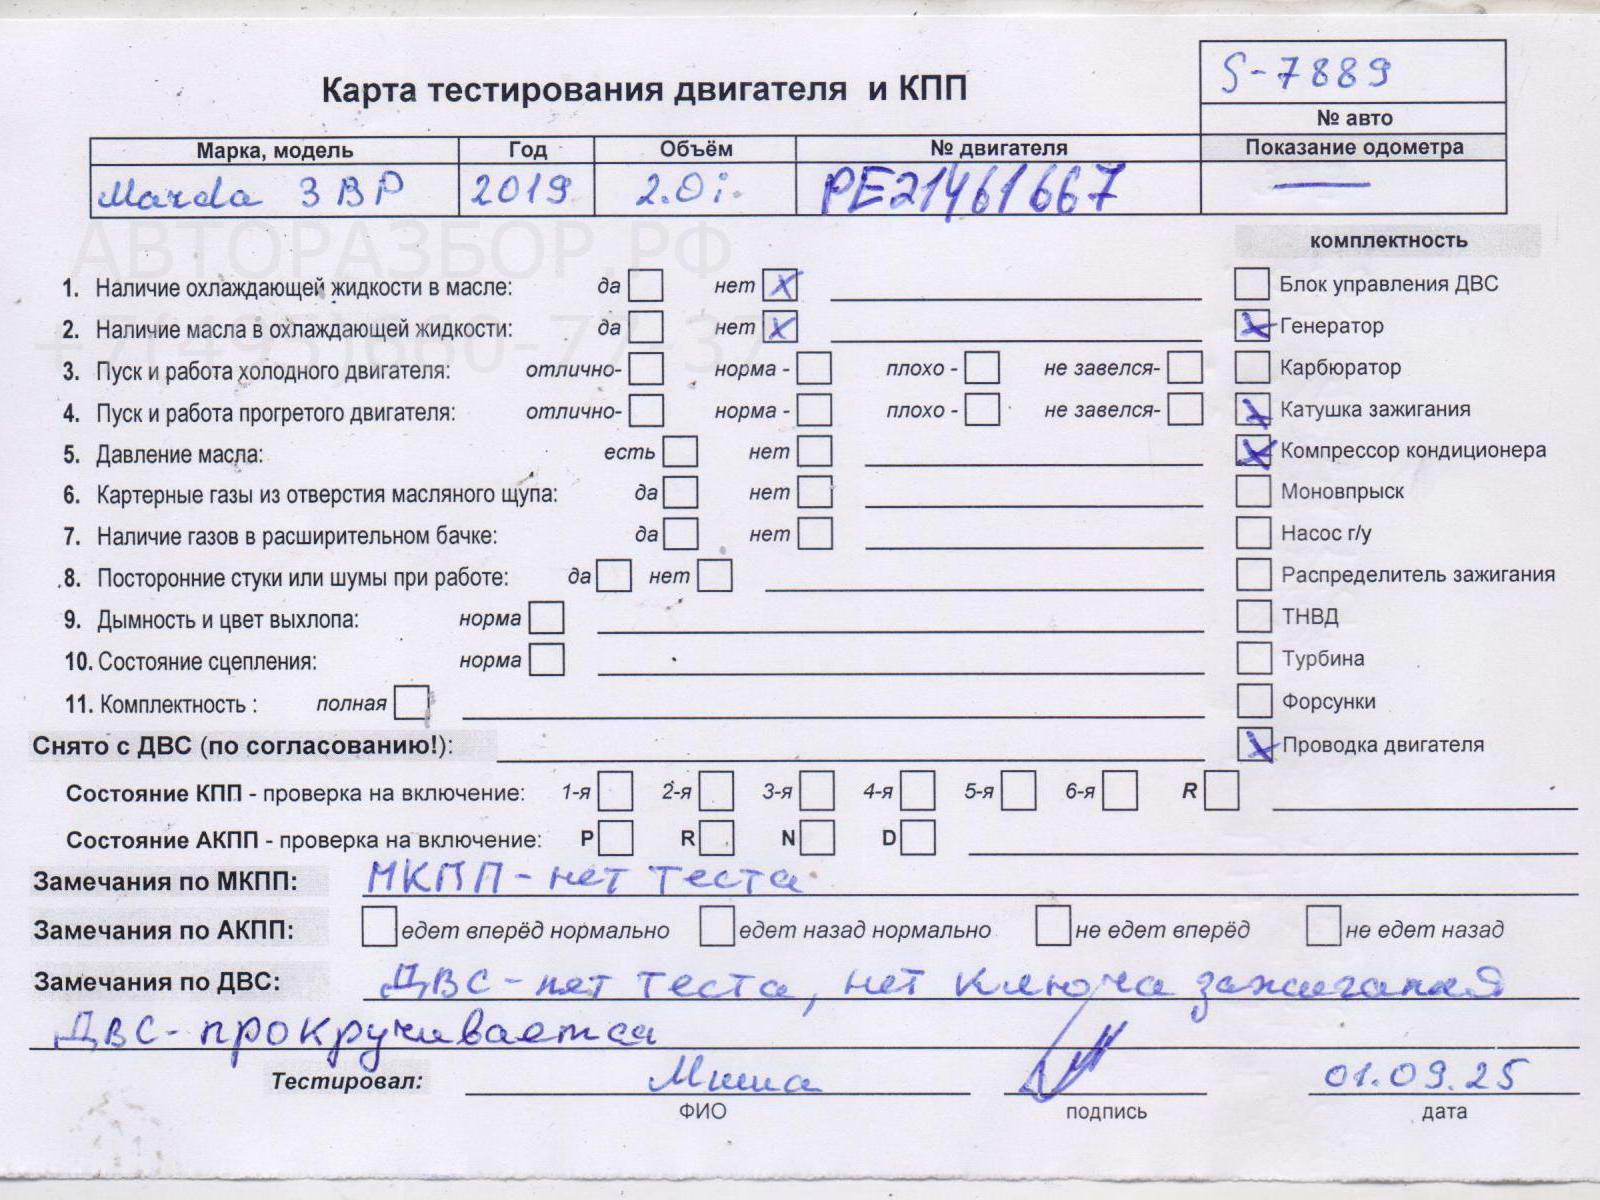 S-7889
Карта тестирования двигателя и КПП
№ авто
Марка, модель Год Объём № двигателя Показание одометра
Mazda 3 BP 2019 2.0i. PE21461667 —
АВТОРАЗБОР.РФ
+7(495)660-77-37
комплектность
1. Наличие охлаждающей жидкости в масле: да нет X Блок управления ДВС
2. Наличие масла в охлаждающей жидкости: да нет X X Генератор
3. Пуск и работа холодного двигателя: отлично- норма - плохо - не завелся- Карбюратор
4. Пуск и работа прогретого двигателя: отлично- норма - плохо - не завелся- X Катушка зажигания
5. Давление масла: есть нет X Компрессор кондиционера
6. Картерные газы из отверстия масляного щупа: да нет Моновпрыск
7. Наличие газов в расширительном бачке: да нет Насос г/у
8. Посторонние стуки или шумы при работе: да нет Распределитель зажигания
9. Дымность и цвет выхлопа: норма ТНВД
10. Состояние сцепления: норма Турбина
11. Комплектность : полная Форсунки
Снято с ДВС (по согласованию!): X Проводка двигателя
Состояние КПП - проверка на включение: 1-я 2-я 3-я 4-я 5-я 6-я R
Состояние АКПП - проверка на включение: P R N D
Замечания по МКПП: МКПП - нет теста
Замечания по АКПП: едет вперёд нормально едет назад нормально не едет вперёд не едет назад
Замечания по ДВС: ДВС - нет теста, нет ключа зажигания
ДВС - прокручивается
Тестировал: Миша 01.09.25
ФИО подпись дата